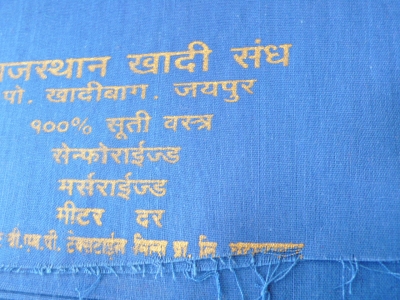 राजस्थान खादी संघ
पो. खादीबाग. जयपुर
१००% सूती वस्त्र
सेन्फोराईज्ड
मर्सराईज्ड
मीटर दर
बी.एम.पी. टेक्सटाईल मिल्स प्रा. लि.